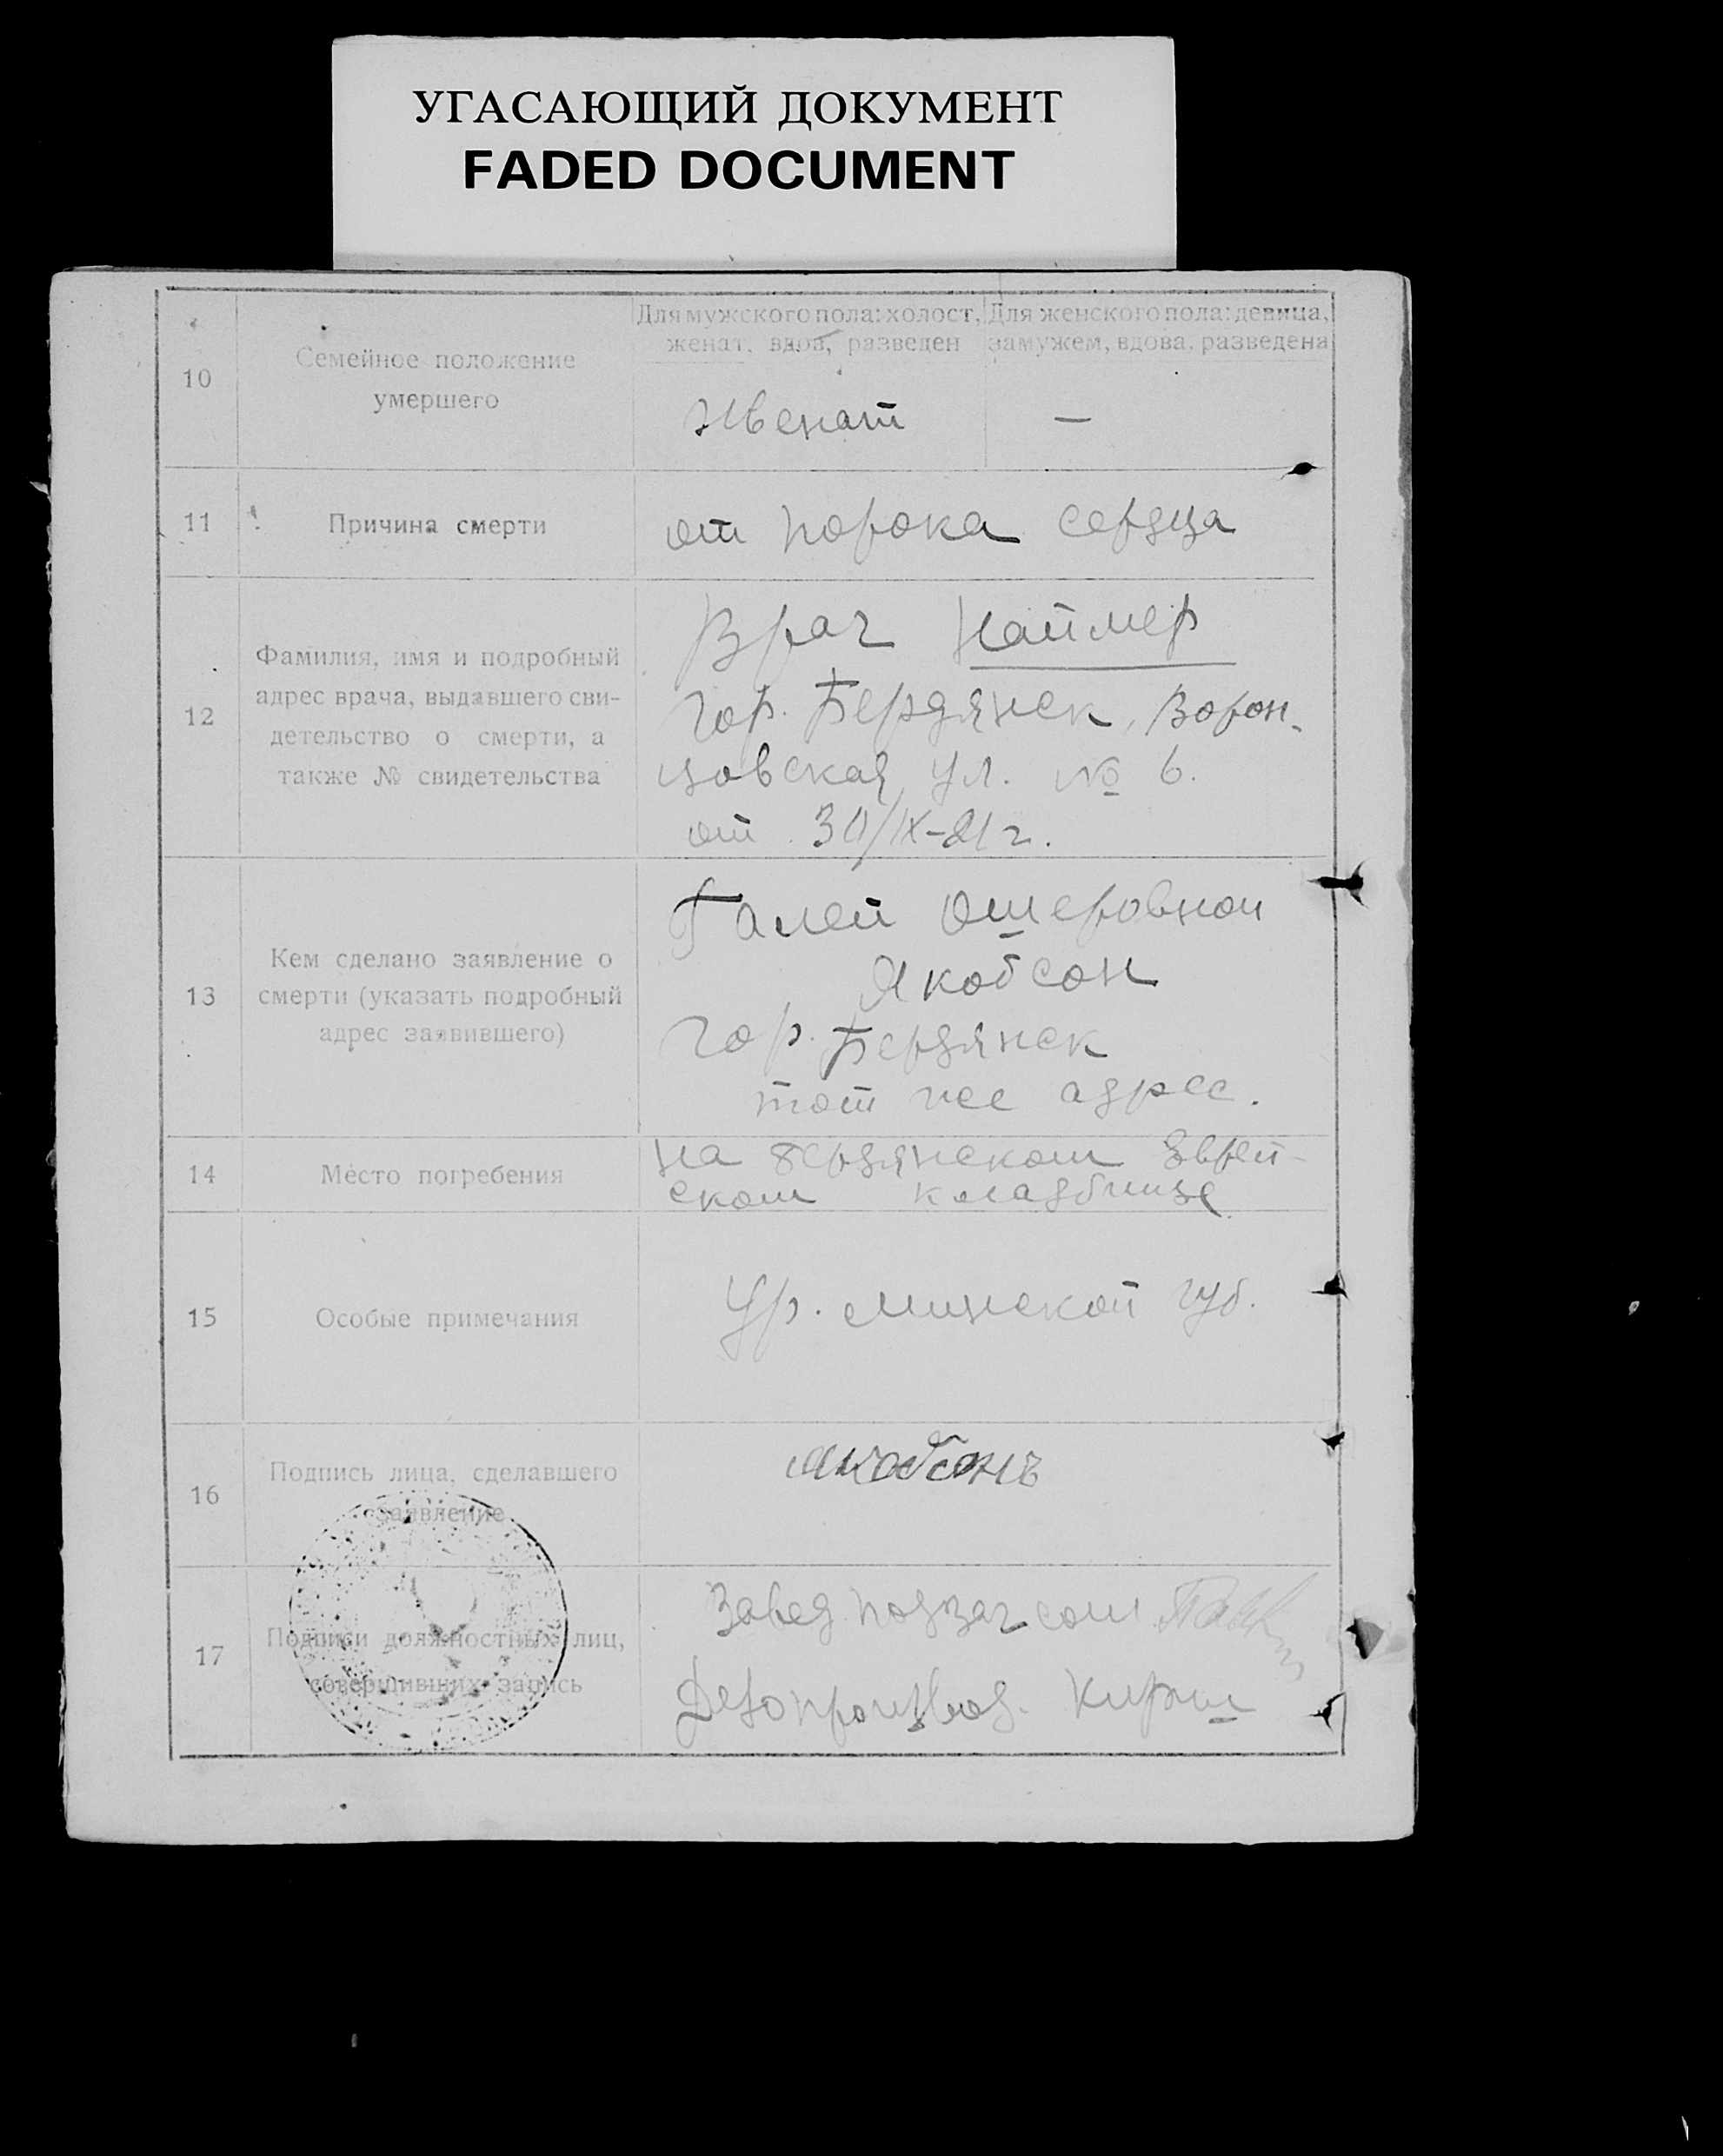 УГАСАЮЩИЙ ДОКУМЕНТ
FADED DOCUMENT
10
Семейное положение
умершего
Для мужского пола: холост,
женат, вдов, разведен
Для женского пола: девица,
замужем, вдова, разведена
Женат
—
11
Причина смерти
от порока сердца
12
Фамилия, имя и подробный
адрес врача, выдавшего сви-
детельство о смерти, а
также № свидетельства
Врач
гор. Бердянск, Ворон-
цовская ул. № 6.
от 30/IX-21 г.
13
Кем сделано заявление о
смерти (указать подробный
адрес заявившего)
Ошеровной
Якобсон
гор. Бердянск
тот же адрес.
14
Место погребения
на бердянском Еврей-
ском кладбище
15
Особые примечания
Ур. Минской губ.
16
Подпись лица, сделавшего
заявление
Якобсонъ
17
Подписи должностных лиц,
совершивших запись
Завед. подзагсом
Делопроизвод. Кирш